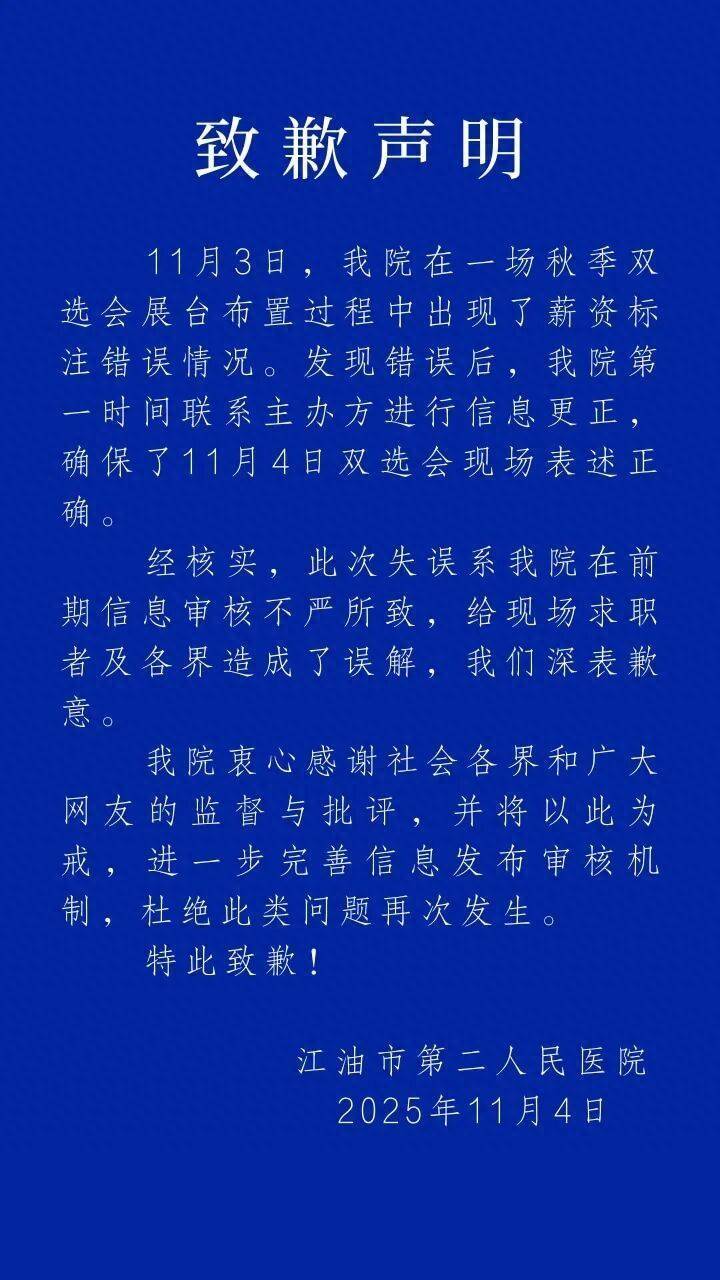 致歉声明
11月3日，我院在一场秋季双
选会展台布置过程中出现了薪资标
注错误情况。发现错误后，我院第
一时间联系主办方进行信息更正，
确保了11月4日双选会现场表述正
确。
经核实，此次失误系我院在前
期信息审核不严所致，给现场求职
者及各界造成了误解，我们深表歉
意。
我院衷心感谢社会各界和广大
网友的监督与批评，并将以此为
戒，进一步完善信息发布审核机
制，杜绝此类问题再次发生。
特此致歉！
江油市第二人民医院
2025年11月4日